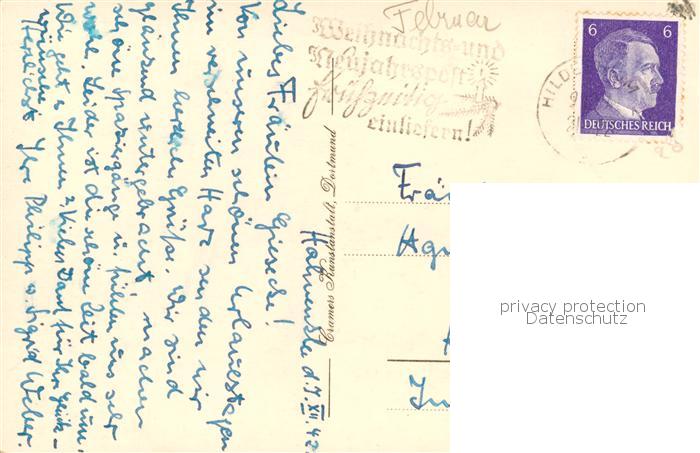 Februar
Weihnachts- und
Neujahrspost
frühzeitig
einliefern!
HILD
6 6
DEUTSCHES REICH
Hahnenklee d. 7. XII. 42.
Liebes Fräulein Giesecke!
Von unseren schönen Urlaubstagen
im verschneiten Harz senden wir
Ihnen herzliche Grüße. Wir sind
glänzend untergebracht machen
schöne Spaziergänge u. fühlen uns sehr
wohl. Leider ist die schöne Zeit bald um.
Wie geht es Ihnen? Vielen Dank für Ihre Glück-
wünsche.
Herzlichst Ihre Philipp u. Sigrid Weber.
Cramers Kunstanstalt, Dortmund
Frä
privacy protection
Datenschutz